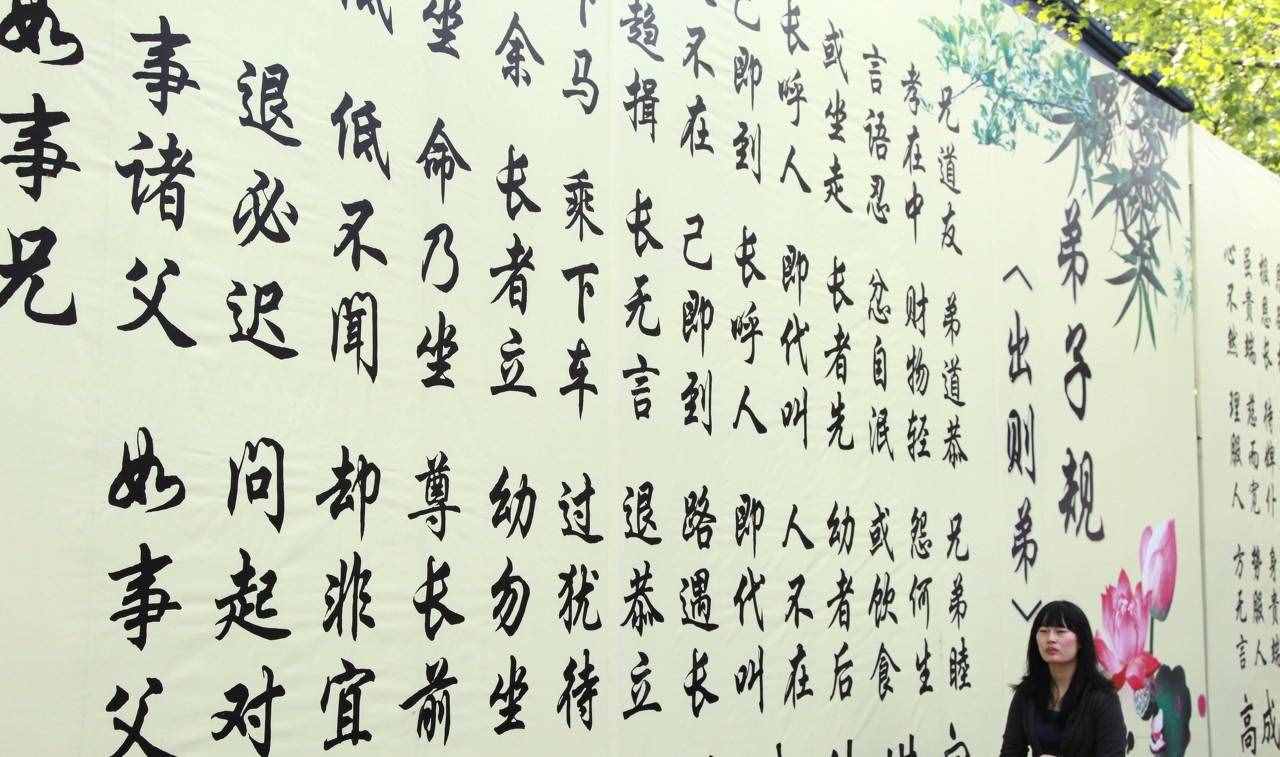 虽贵端 慈而宽 势服人 高
心不然 理服人 方无言
弟子规
〈出则弟〉
兄道友 弟道恭 兄弟睦
孝在中 财物轻 怨何生
言语忍 忿自泯 或饮食
或坐走 长者先 幼者后
长呼人 即代叫 人不在
己即到 长呼人 即代叫
不在 己即到 路遇长
趨揖 长无言 退恭立
下马 乘下车 过犹待
余 长者立 幼勿坐
坐 命乃坐 尊长前
低 低不聞 却非宜
退必迟 问起对
事诸父 如事父
如事兄